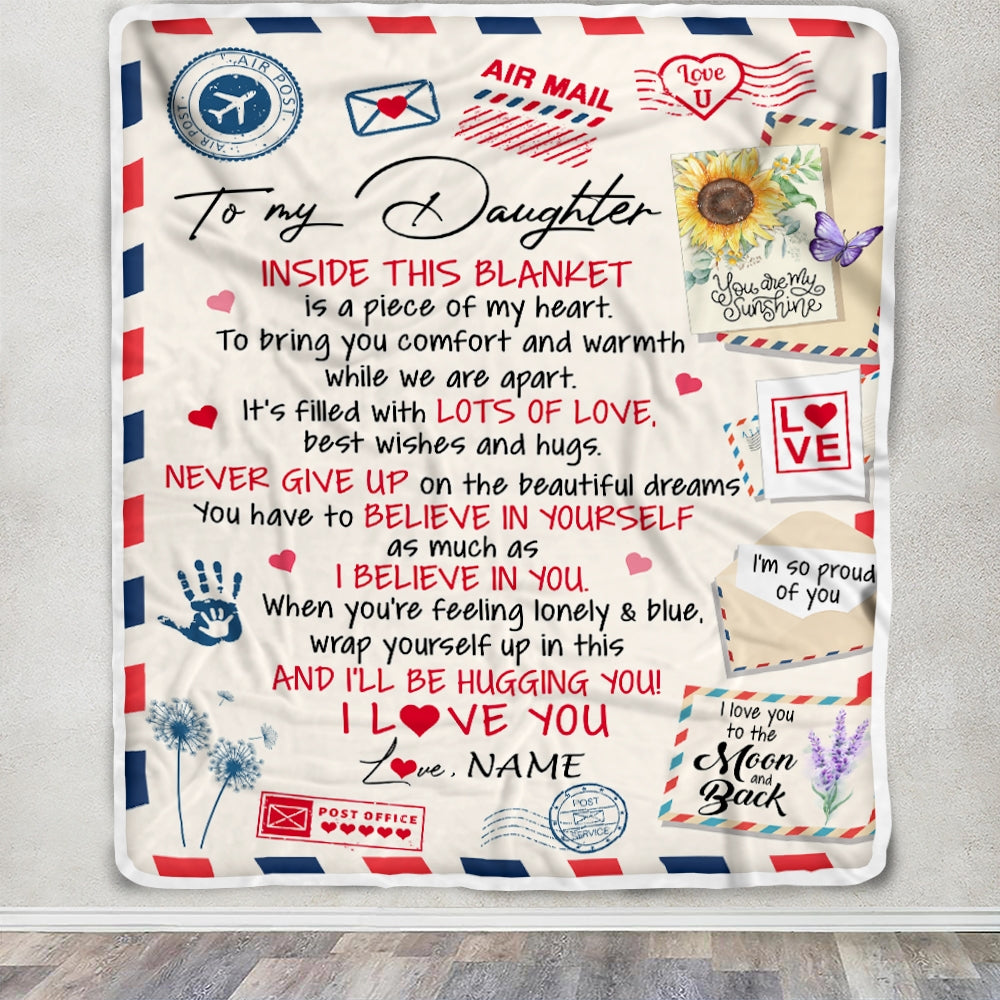 AIR POST
AIR POST
AIR MAIL
Love
U
To my Daughter
INSIDE THIS BLANKET
is a piece of my heart.
To bring you comfort and warmth
while we are apart.
It's filled with LOTS OF LOVE,
best wishes and hugs.
NEVER GIVE UP on the beautiful dreams
You have to BELIEVE IN YOURSELF
as much as
I BELIEVE IN YOU.
When you're feeling lonely & blue,
wrap yourself up in this
AND I'LL BE HUGGING YOU!
I L❤VE YOU
L❤ve, NAME
You are My
Sunshine
L❤
VE
I'm so proud
of you
I love you
to the
Moon
and
Back
POST OFFICE
POST
SERVICE